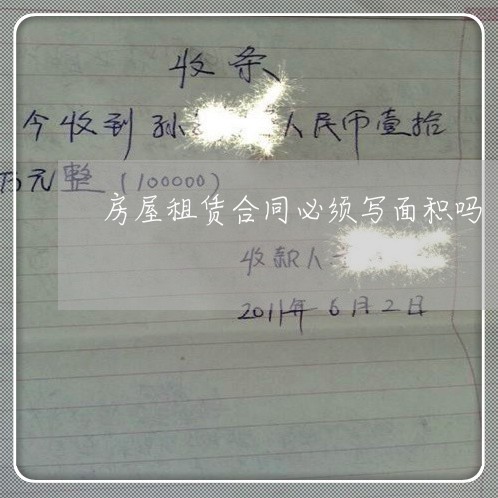 收条
今收到孙人民币壹拾
万元整（100000）
房屋租赁合同必须写面积吗
收款人
2011年6月2日